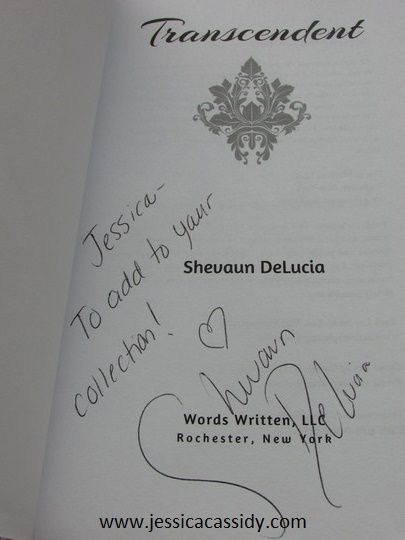 Transcendent
Jessica-
To add to your
collection!
Shevaun DeLucia
♡ Shevaun
DeLucia
Words Written, LLC
Rochester, New York
www.jessicacassidy.com